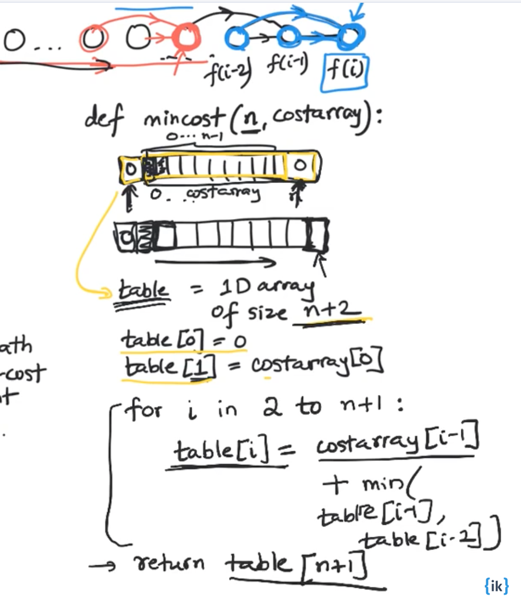 f(i-2) f(i-1) f(i)
def mincost(n, costarray):
0...n-1
0 0
0...costarray
0
table = 1D array
of size n+2
table[0] = 0
table[1] = costarray[0]
ath
-cost
t
.
for i in 2 to n+1 :
table[i] = costarray[i-1]
+ min(
table[i-1],
table[i-2])
→ return table[n+1]
{ik}